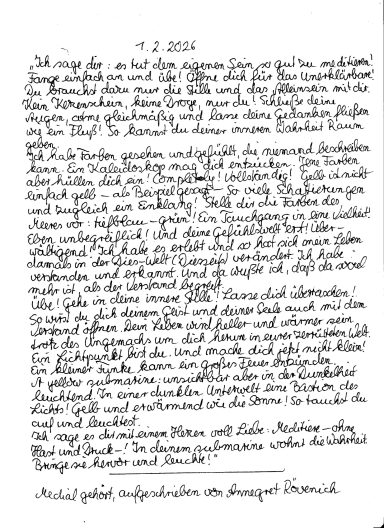 1.2.2026
"Ich sage dir: es tut dem eigenen Sein so gut zu meditieren!
Fange einfach an und übe! Öffne dich für das Unerklärbare!
Du brauchst dazu nur die Stille und das Alleinsein mit dir.
Kein Kerzenschein, keine Droge, nur du! Schließe deine
Augen, atme gleichmäßig und lasse deine Gedanken fließen
wie ein Fluß! So kannst du deiner inneren Wahrheit Raum
geben.
Ich habe Farben gesehen und gefühlt, die niemand beschreiben
kann. Ein Kaleidoskop mag dich entzücken. Jene Farben
aber hüllen dich ein! Completely! Vollständig! Gelb ist nicht
einfach gelb – als Beispiel gesagt – So viele Schattierungen
und zugleich ein Einklang! Stelle dir die Farben des
Meeres vor: tiefblau – grün! Ein Tauchgang in eine Vielheit!
Eben unbegreiflich! Und deine Gefühlswelt erst! Über-
wältigend! Ich habe es erlebt und so hat sich mein Leben
damals in der Dies-Welt (Diesseits) verändert. Ich habe
verstanden und erkannt. Und da wußte ich, daß da soviel
mehr ist, als der Verstand begreift.
Übe! Gehe in deine innere Stille! Lasse dich überraschen!
So wirst du dich deinem Geist und deiner Seele auch mit dem
Verstand öffnen. Dein Leben wird heller und wärmer sein
trotz des Ungemachs um dich herum in eurer zerrütteten Welt.
Ein Lichtpunkt bist du. Und mache dich jetzt nicht klein!
Ein kleiner Funke kann ein großes Feuer entzünden.
A yellow submarine: unsichtbar aber in der Dunkelheit
leuchtend. In einer dunklen Unterwelt eine Bastion des
Lichts! Gelb und erwärmend wie die Sonne! So tauchst du
auf und leuchtest.
Ich sage es dir mit einem Herzen voll Liebe: Meditiere – ohne
Hast und Druck –! In deinem submarine wohnt die Wahrheit.
Bringe sie hervor und leuchte!"
Medial gehört, aufgeschrieben von Annegret Rövenich